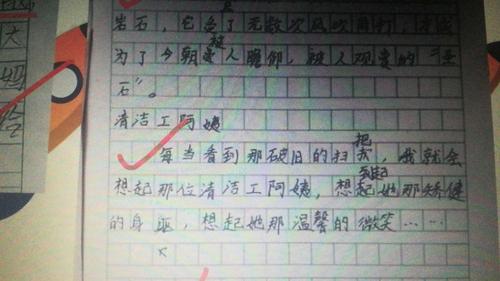 岩石，它含了无数次风吹雨打，才成
为了今朝被人瞻仰，被人观赏的"怪
石"。
清洁工阿姨
每当看到那破旧的扫把，我就会
想起那位清洁工阿姨，想起她那矫健
的身躯，想起她那温馨的微笑……